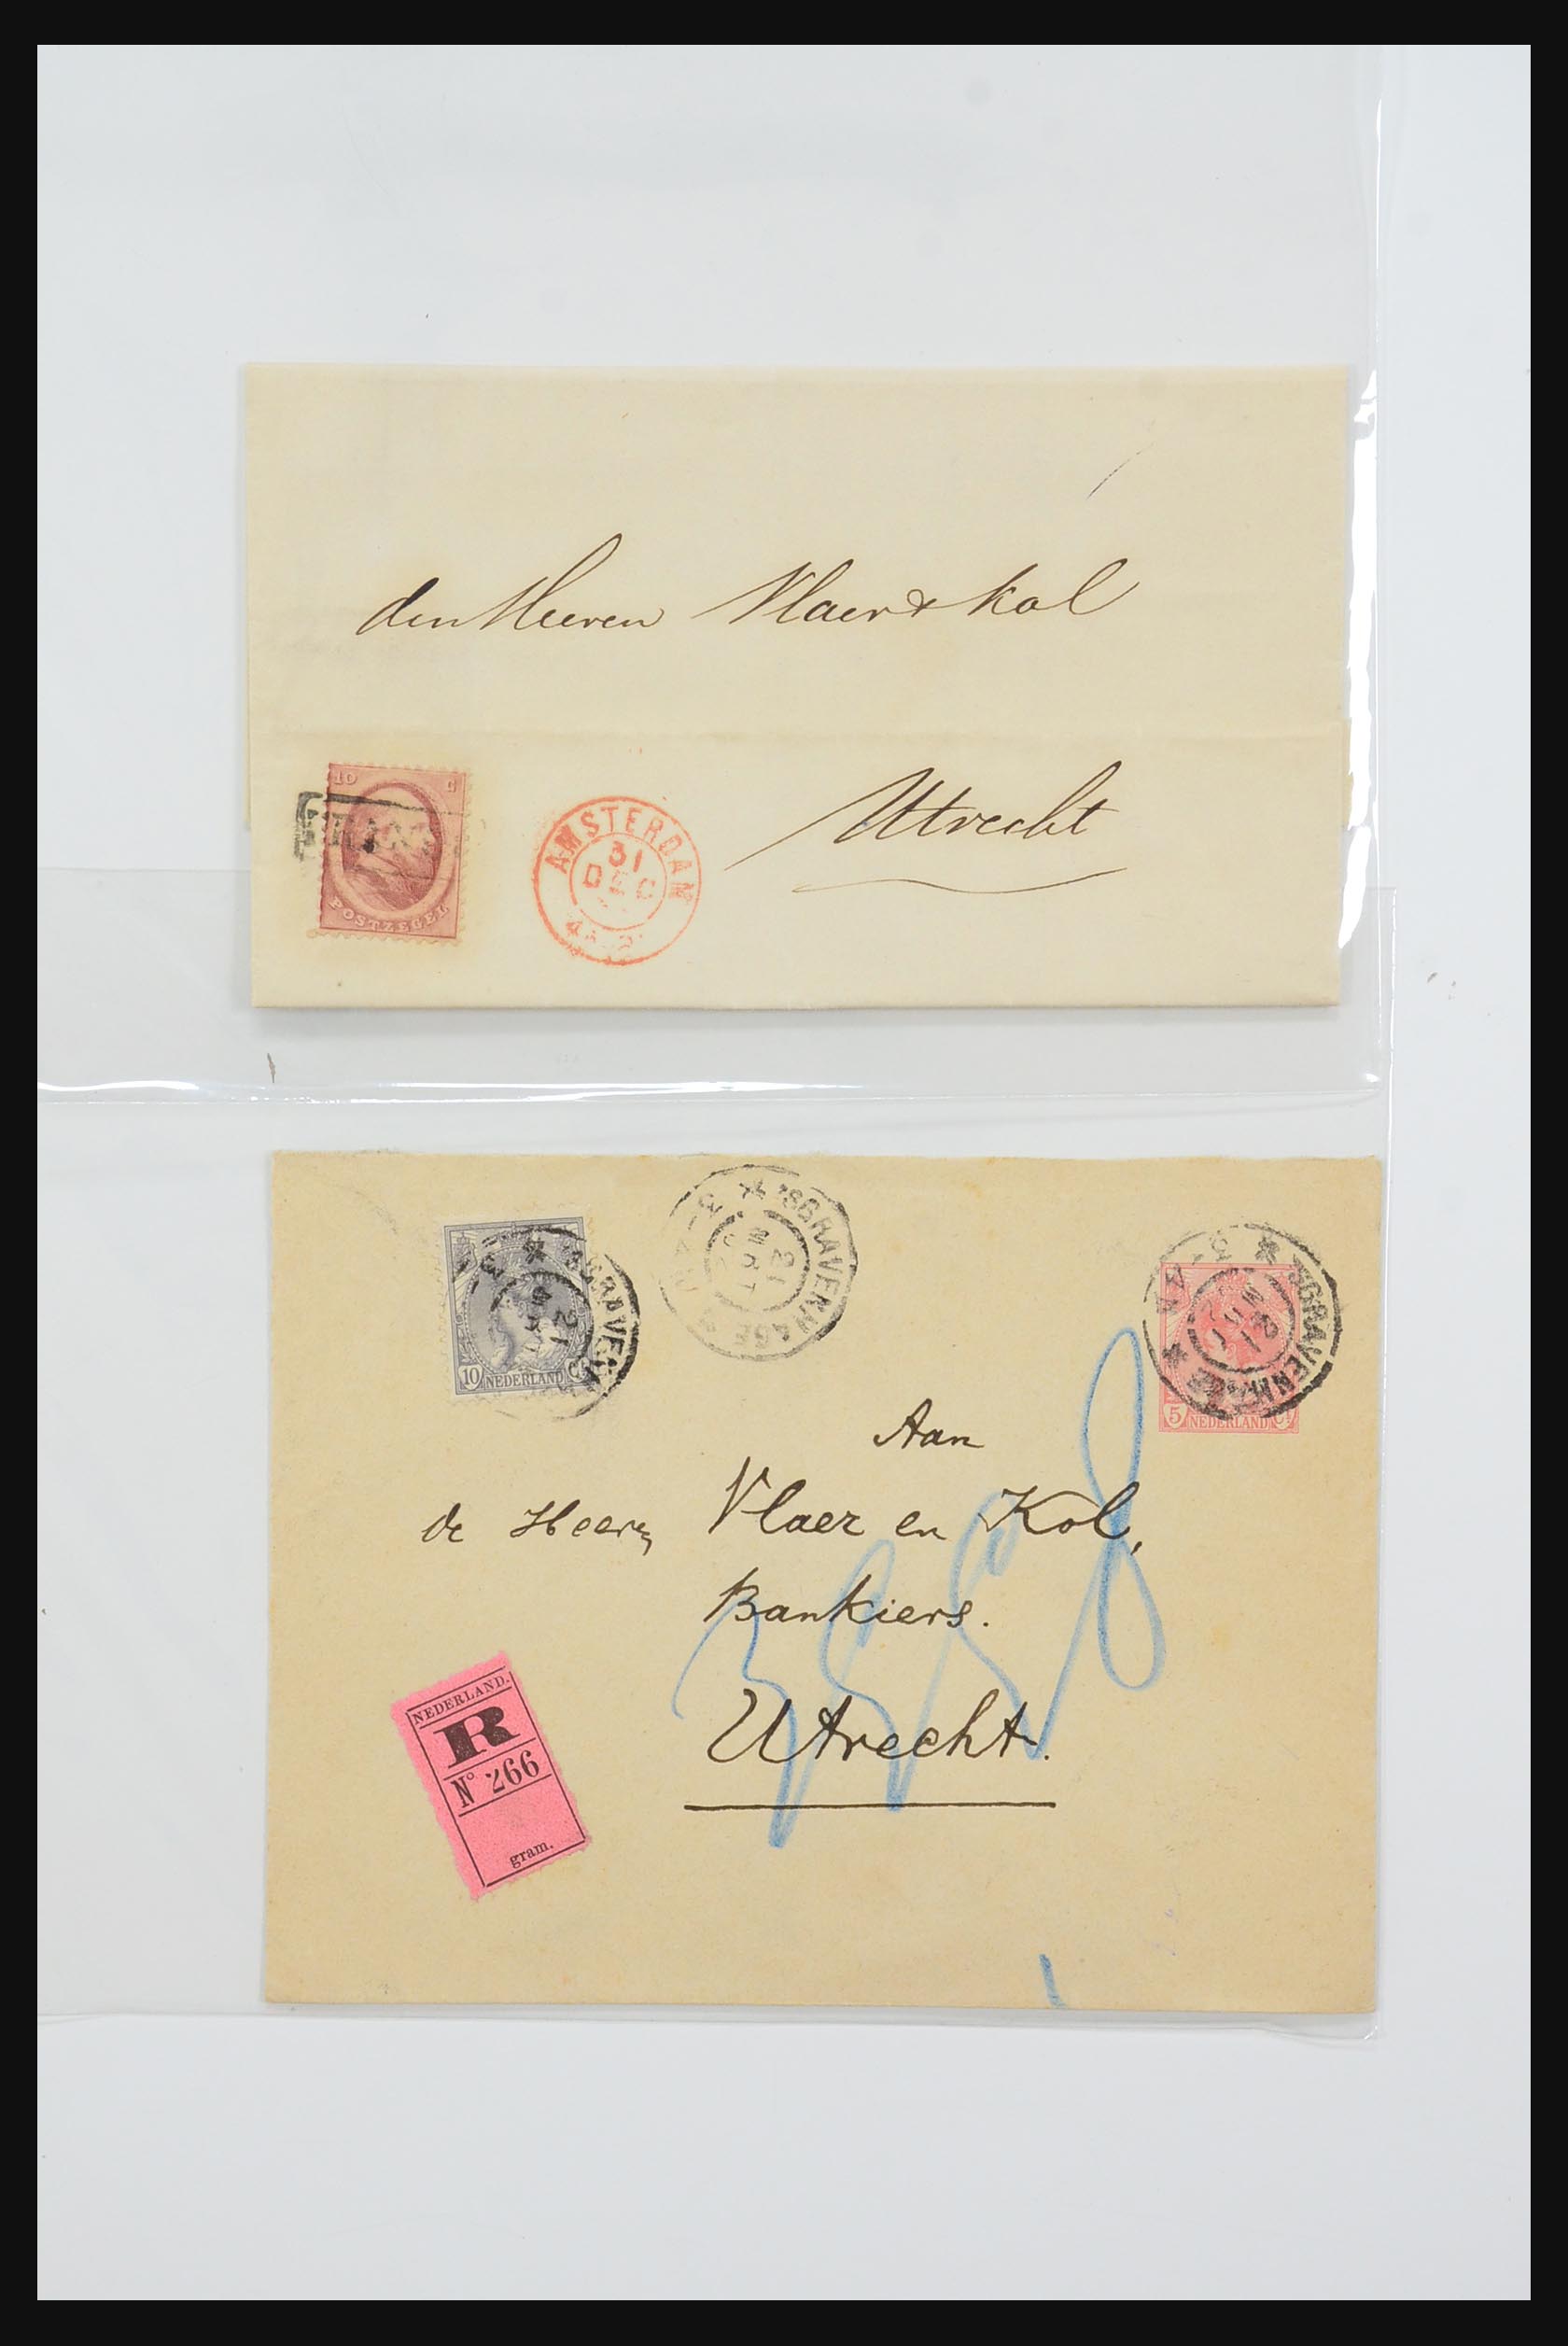 den Heeren Vlaer & Kol
10 C
FRANCO
POSTZEGEL
AMSTERDAM
31
DEC
Utrecht
'SGRAVENHAGE
21
3-4N
'SGRAVENHAGE
21
10 NEDERLAND Ct
'SGRAVENHAGE
21
3-4N
5 NEDERLAND Ct
Aan
de Heeren Vlaer en Kol,
Bankiers.
Utrecht.
NEDERLAND.
R
No 266
gram.